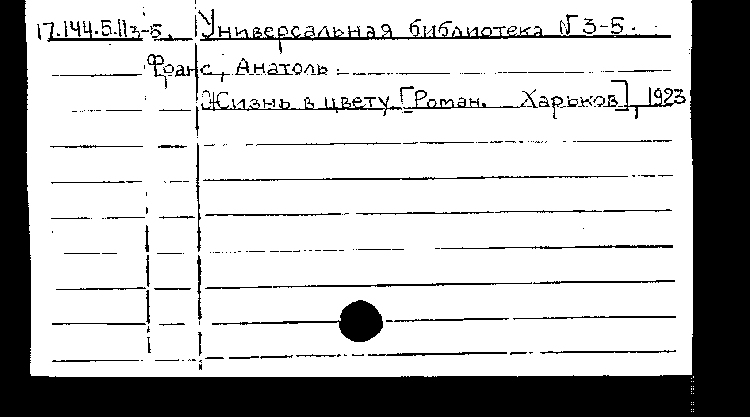 17.144.5.II3-5. Универсальная библиотека N 3-5.
Франс, Анатоль.
Жизнь в цвету [Роман. Харьков], 1923